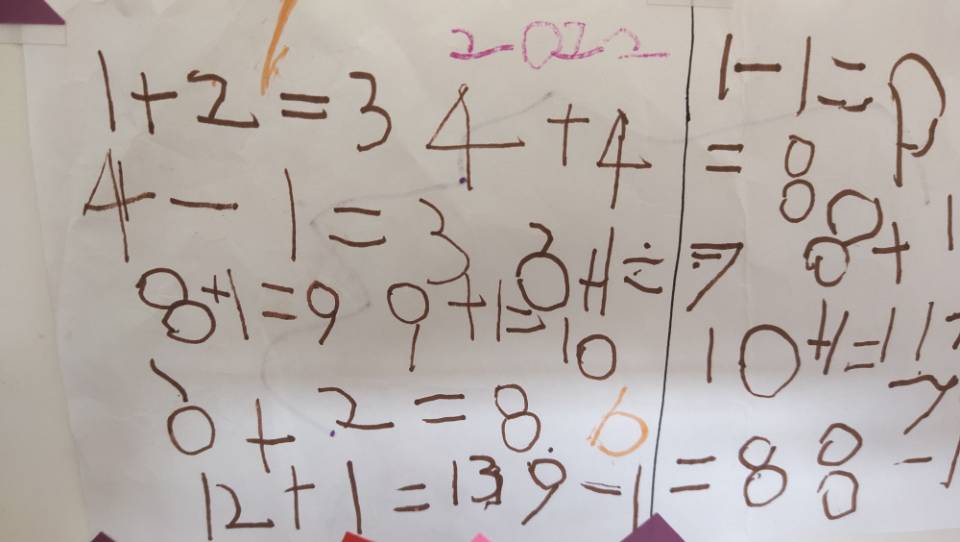 2022
1+2=3
4+4=8
1-1=
4-1=3
6+1=7
8+1
8+1=9
9+1=10
10+1=11
6+2=8
6
12+1=13
9-1=8
8